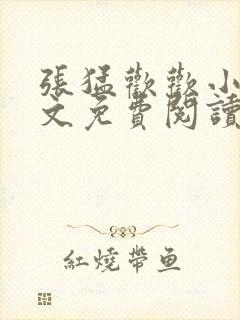 張猛歡歡小
文免費閱讀
紅燒帶鱼